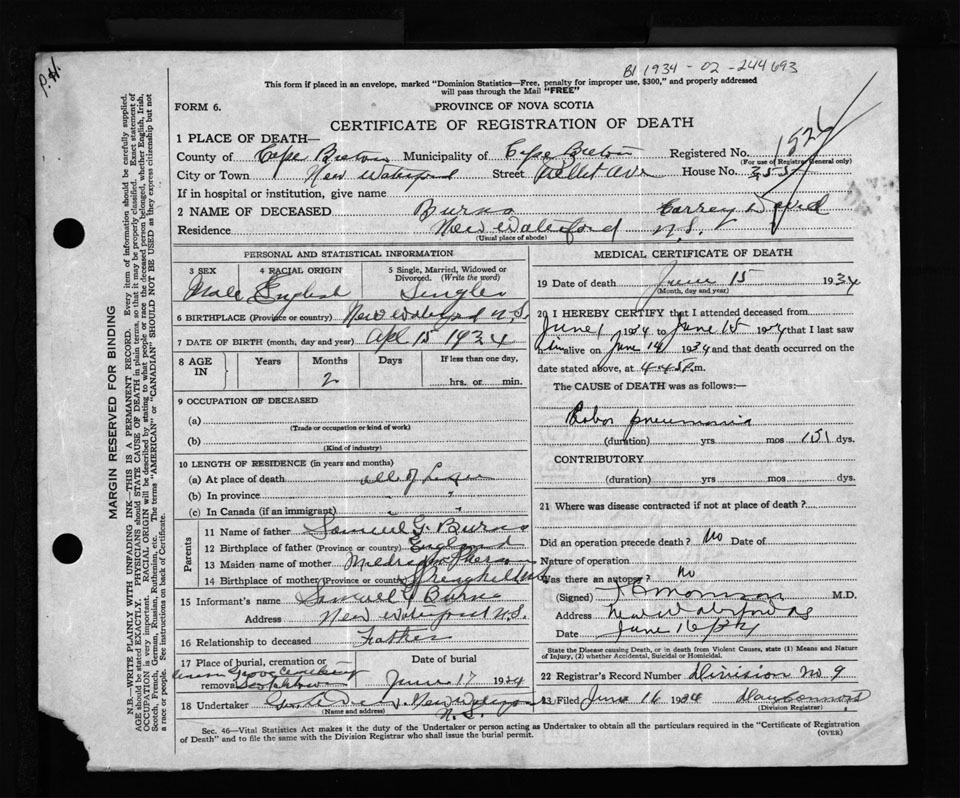 P.H.
B1 1934-02-244693
This form if placed in an envelope, marked "Dominion Statistics—Free, penalty for improper use, $300," and properly addressed
will pass through the Mail "FREE"
FORM 6.
PROVINCE OF NOVA SCOTIA
CERTIFICATE OF REGISTRATION OF DEATH
1 PLACE OF DEATH—
County of Cape Breton Municipality of Cape Breton Registered No. 1524
(For use of Registrar General only)
City or Town New Waterford Street Ave House No.
If in hospital or institution, give name
2 NAME OF DECEASED Burns
Residence New Waterford N.S.
(Usual place of abode)
PERSONAL AND STATISTICAL INFORMATION
3 SEX 4 RACIAL ORIGIN 5 Single, Married, Widowed or Divorced. (Write the word)
Male English Single
6 BIRTHPLACE (Province or country) New Waterford N.S.
7 DATE OF BIRTH (month, day and year) Apl 15 1934
8 AGE IN Years Months Days If less than one day,
2 hrs. or min.
9 OCCUPATION OF DECEASED
(a)
(Trade or occupation or kind of work)
(b)
(Kind of industry)
10 LENGTH OF RESIDENCE (in years and months)
(a) At place of death all of Life
(b) In province " "
(c) In Canada (if an immigrant) " "
Parents
11 Name of father Samuel G. Burns
12 Birthplace of father (Province or country) England
13 Maiden name of mother
14 Birthplace of mother (Province or country) Springhill N.S.
15 Informant's name Samuel G Burns
Address New Waterford N.S.
16 Relationship to deceased Father
17 Place of burial, cremation or removal Grove Cemetery Date of burial
June 17 1934
18 Undertaker New Waterford
N.S.
(Name and address)
MEDICAL CERTIFICATE OF DEATH
19 Date of death June 15 1934
(Month, day and year)
20 I HEREBY CERTIFY that I attended deceased from
June 1 1934 to June 15 1934 that I last saw
him alive on June 14 1934 and that death occurred on the
date stated above, at 4.45 P.m.
The CAUSE of DEATH was as follows:—
Lobar pneumonia
(duration) yrs mos 15 dys.
CONTRIBUTORY
(duration) yrs mos dys.
21 Where was disease contracted if not at place of death?
Did an operation precede death? No Date of
Nature of operation
Was there an autopsy? No
(Signed) Morrison M.D.
Address New Waterford NS
Date June 16/34
State the Disease causing Death, or in death from Violent Causes, state (1) Means and
Nature of Injury, (2) whether Accidental, Suicidal or Homicidal.
22 Registrar's Record Number Division No 9
23 Filed June 16 1934
(Division Registrar)
Sec. 46—Vital Statistics Act makes it the duty of the Undertaker or person acting as Undertaker to obtain all the particulars required in the "Certificate of Registration
of Death" and to file the same with the Division Registrar who shall issue the burial permit.
(OVER)
MARGIN RESERVED FOR BINDING
N.B.—WRITE PLAINLY WITH UNFADING INK—THIS IS A PERMANENT RECORD. Every item of information should be carefully supplied.
AGE should be stated EXACTLY. PHYSICIANS should STATE CAUSE OF DEATH in plain terms, so that it may be properly classified. Exact statement of
OCCUPATION is very important. RACIAL ORIGIN will be described by stating to what people or race the deceased person belonged, whether English, Irish,
Scotch, French, German, Russian, Ruthenian, etc. The terms "AMERICAN" or "CANADIAN" SHOULD NOT BE USED as they express citizenship but not
a race or people. See instructions on back of Certificate.